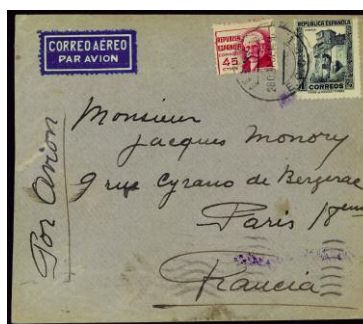 CORREO AÉREO
PAR AVION
REPUBLICA
ESPAÑOLA
45
CTMOS
REPUBLICA ESPAÑOLA
CORREOS
Monsieur
Jacques Monory
9 rue Cyrano de Bergerac
Paris 18em
Francia
Por Avion